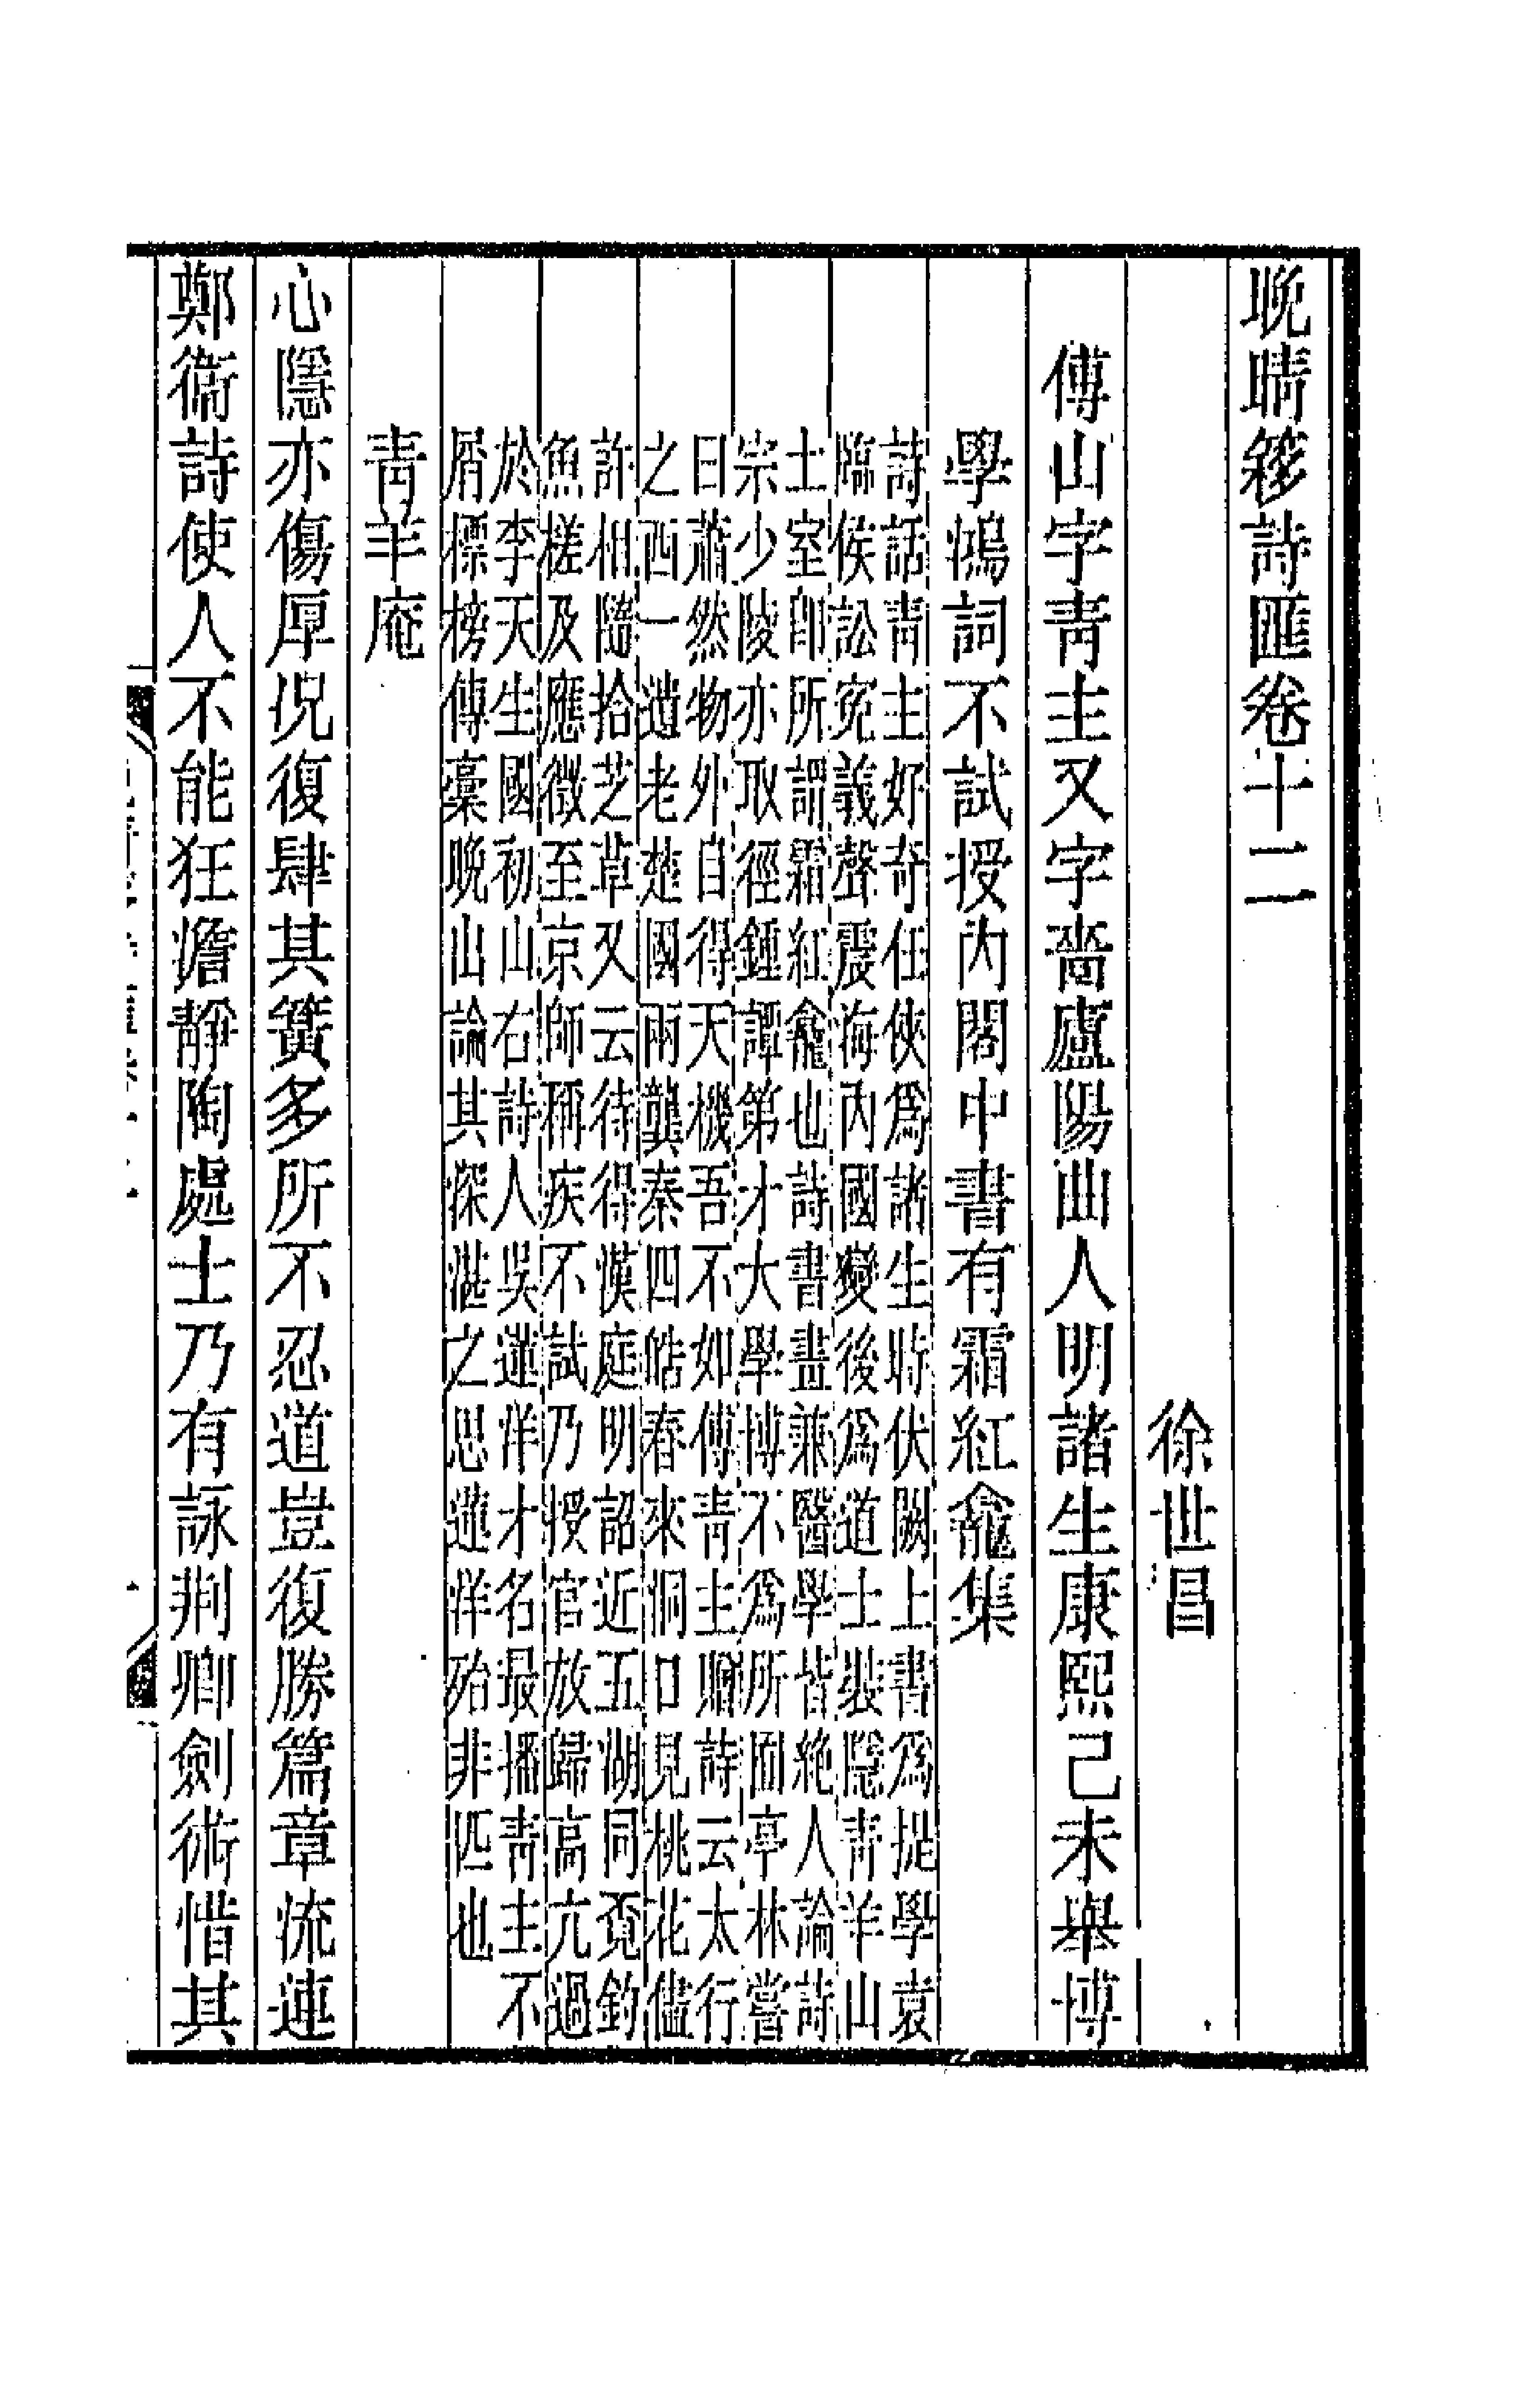 晚晴簃詩匯卷十二
徐世昌
傅山字青主又字嗇廬陽曲人明諸生康熙己未舉博
學鴻詞不試授內閣中書有霜紅龕集
詩話青主好奇任俠爲諸生時伏闕上書爲提學袁
臨侯訟寃義聲震海內國變後爲道士裝隱青羊山
土室卽所謂霜紅龕也詩書畫兼醫學皆絶人論詩
宗少陵亦取徑鍾譚第才大學博不爲所囿亭林嘗
曰蕭然物外自得天機吾不如傅青主贈詩云太行
之西一遺老楚國兩龔秦四皓春來洞口見桃花儻
許相隨拾芝草又云待得漢庭明詔近五湖同覓釣
魚槎及應徵至京師稱疾不試乃授官放歸高亢過
於李天生國初山右詩人吳蓮洋才名最播青主不
屑標榜傳稾晚出論其深湛之思蓮洋殆非匹也
青羊庵
心隱亦傷厚况復肆其簧多所不忍道豈復勝篇章流連
鄭衞詩使人不能狂澹靜陶處士乃有詠荆卿劍術惜其